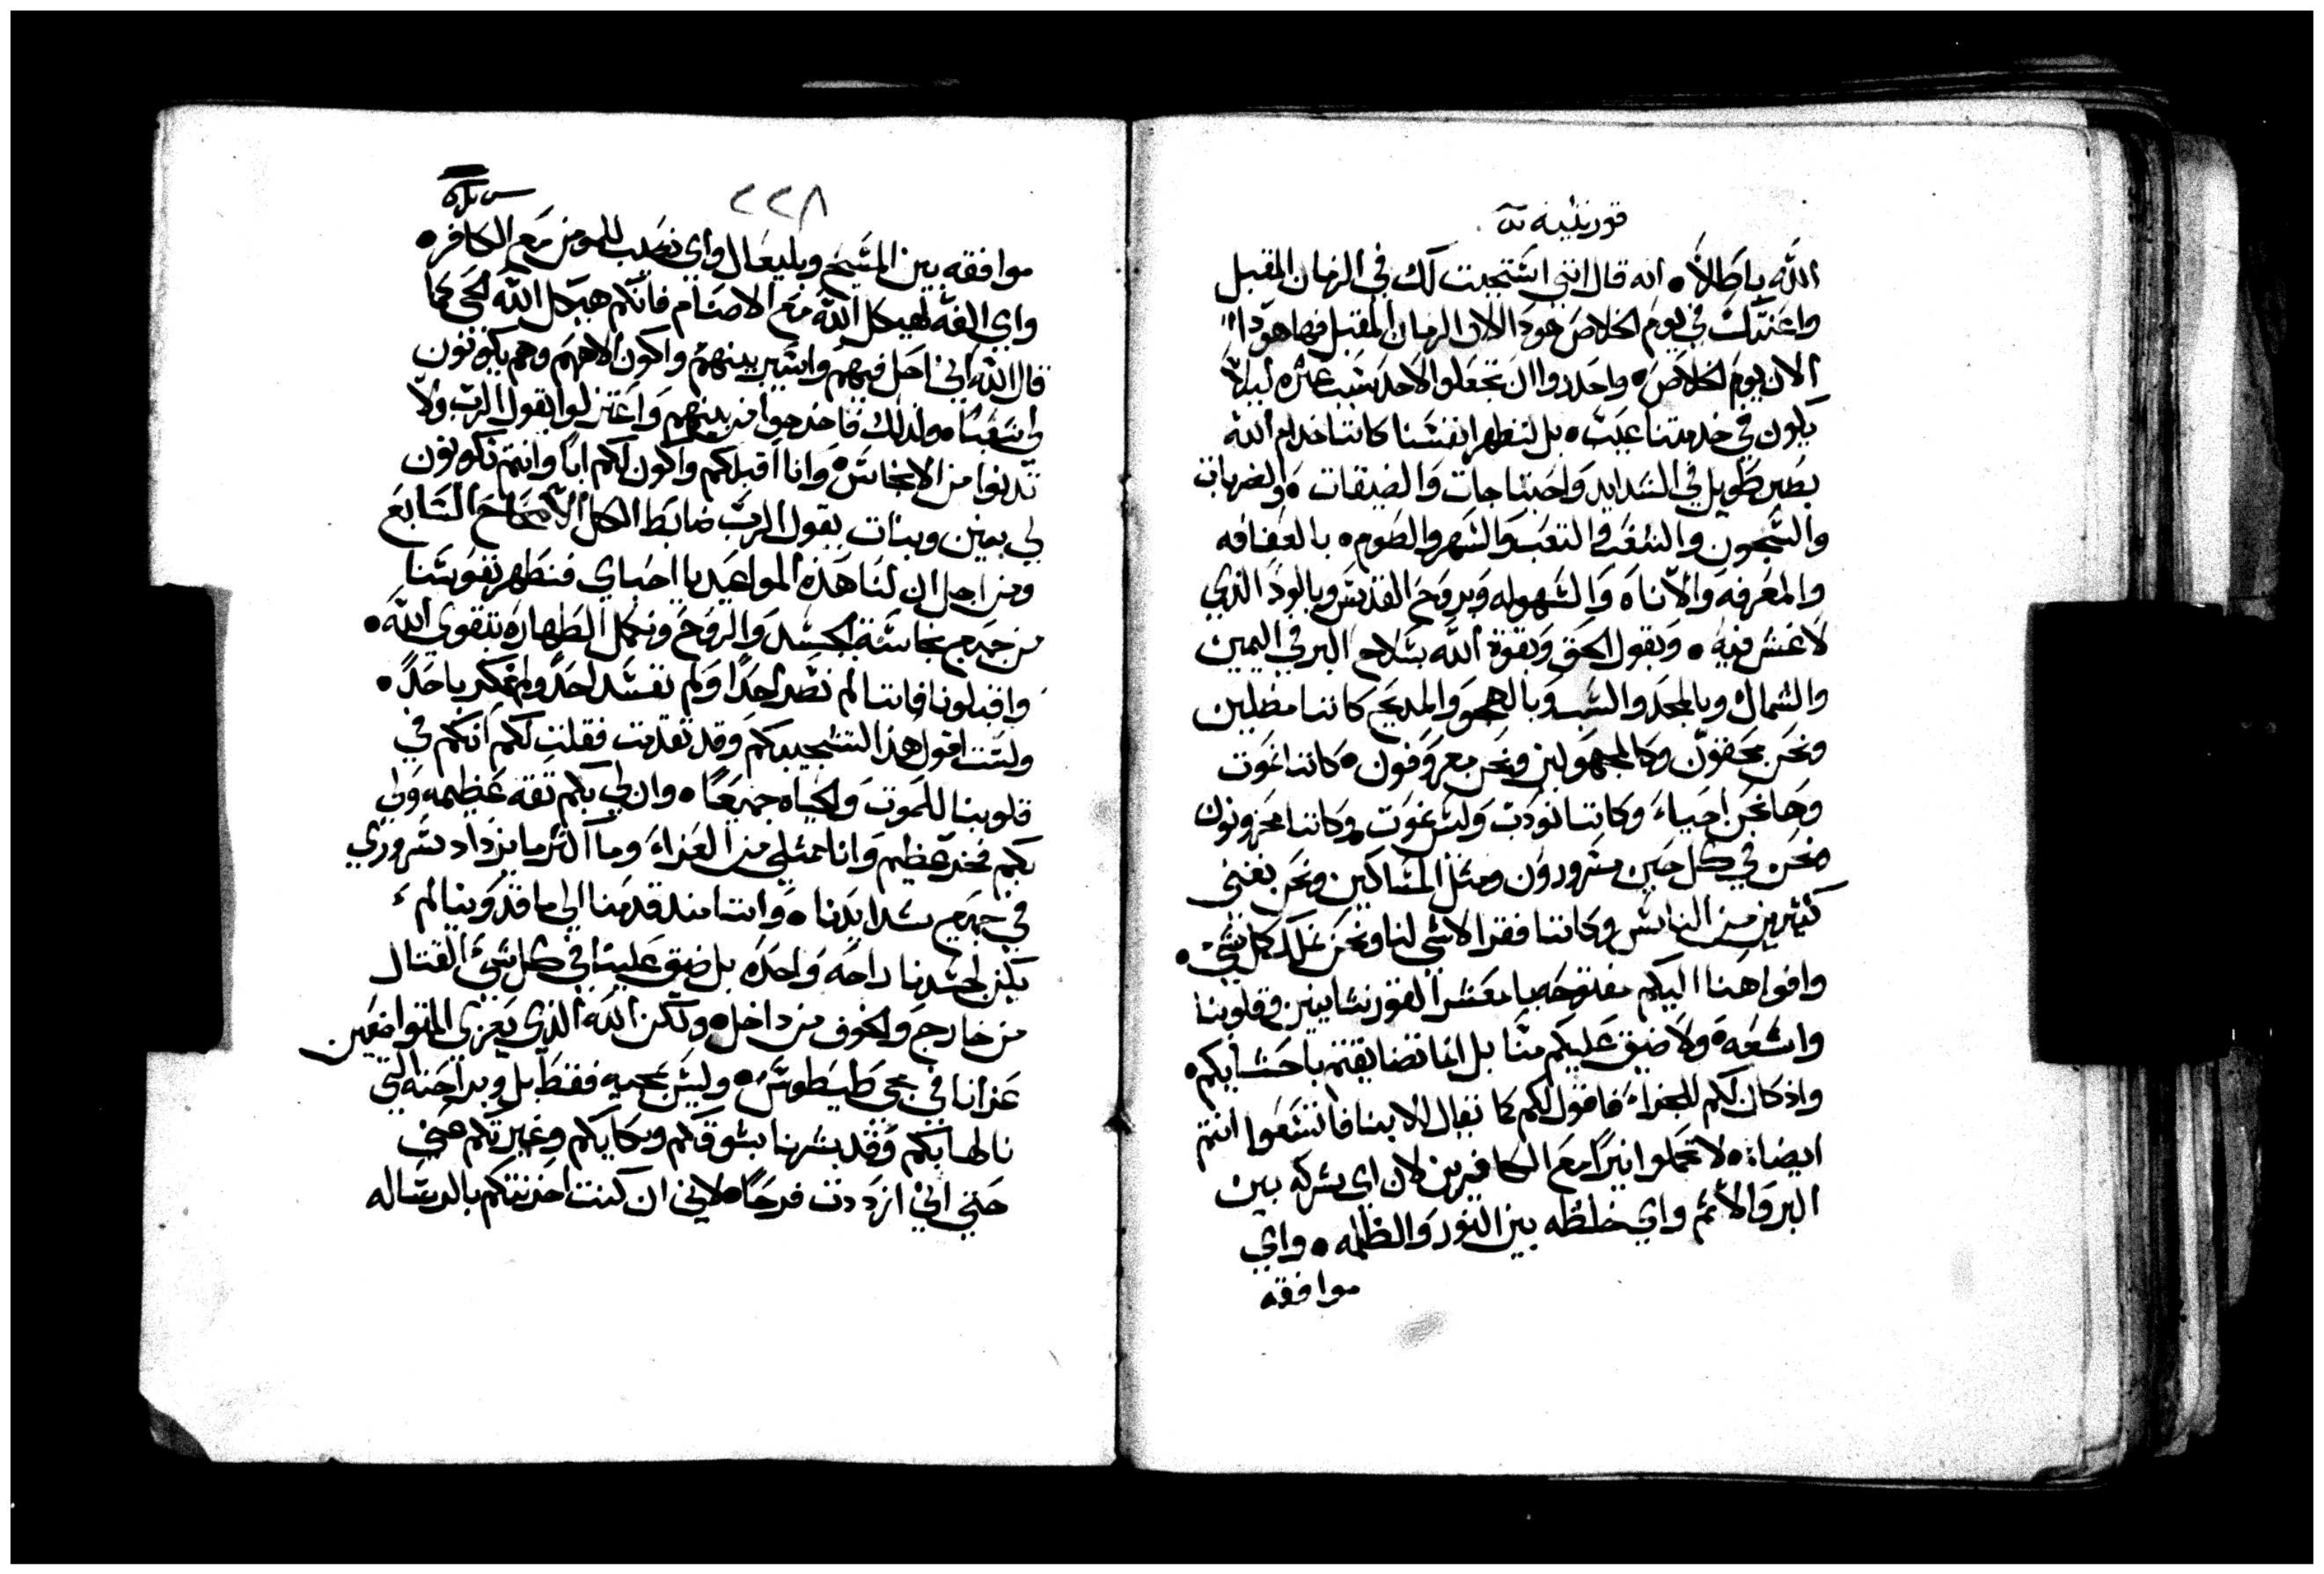 قورنثيه
الله باطلاً • انه قال انني استجبت لك في الزمان المقبل
واعنتك في يوم الخلاص هودا الان الزمان المقبل فها هودا
الان يوم الخلاص • واحدروا ان تجعلوا لاحد سبب عثره ليلا
يكون في خدمتنا عيب • بل لنظهر انفسنا كاننا خدام الله
بصبر طويل في الشدايد واحتياجات والضيقات • والضربات
والسجون والشغب والتعب والسهر والصوم • بالعفافه
والمعرفه والاناه والسهوله وبروح القدس وبالود الذي
لا غش فيه • وبقول الحق وبقوة الله بسلاح البر في اليمين
والشمال وبالمجد والسب وبالهجو والمديح كاننا مضلين
ونحن محقون وكالمجهولين ونحن معروفون • كاننا نموت
وها نحن احياء وكاننا نودب ولسنا نموت وكاننا محزونون
ونحن في كل حين مسرورون ومثل المساكين ونحن نغني
كثيرين من الناس وكاننا فقرا لا شي لنا ونحن نملك كل شي •
وافواهنا اليكم مفتوحه يا معشر القورنثيانيين وقلوبنا
واسعه • ولا ضيق عليكم منا بل انما تضايقتم باحشايكم •
واذ كان لكم للجزاء فاقول لكم كما نقال الابنا فاتسعوا انتم
ايضا • لا تحملوا نيرًا مع الكافرين لان اي شركه بين
البر والاثم واي خلطه بين النور والظلمه • واي
موافقه
٢٢٨
موافقه بين المسيح وبليعال واي نصيب للمومن مع الكافر •
واي الفه لهيكل الله مع الاصنام فانكم هيكل الله الحي كما
قال الله اني احل فيهم واسير بينهم واكون الاههم وهم يكونون
لي شعبًا • ولذلك فاخرجوا من بينهم واعتزلوا يقول الرب ولا
تدنوا من الانجاس • وانا اقبلكم واكون لكم ابًا وانتم تكونون
لي بنين وبنات يقول الرب ضابط الكل الاصحاح السابع
ومن اجل ان لنا هذه المواعيد يا احباي فنطهر نفوسنا
من جميع نجاسة الجسد والروح ونكمل الطهاره بتقوي الله •
واقبلونا فاننا لم نضر احدًا ولم نفسد احدًا ولم نمكر باحدً •
ولست اقول هذا لتشجيبكم وقد تقدمت فقلت لكم انكم في
قلوبنا للموت والحياه جميعًا • وان لي بكم ثقه عظيمه ولي
بكم فخر عظيم وانا ممتلي من العزاء وما اكثر ما يزداد سروري
في جميع شدايدنا • واننا منذ قدمنا الي ماقدونيا لم
يكن لجسدنا راحه واحده بل ضيق علينا في كل شي القتال
من خارج والخوف من داخل • ولكن الله الذي يعزي المتواضعين
عزانا في مجي طيطوس • وليس بمجيه فقط بل وبراحته التي
نالها بكم وقد بشرنا بشوقكم وبكايكم وغيرتكم عني
حتي اني ازددت فرحًا • لاني ان كنت احزنتكم بالرساله